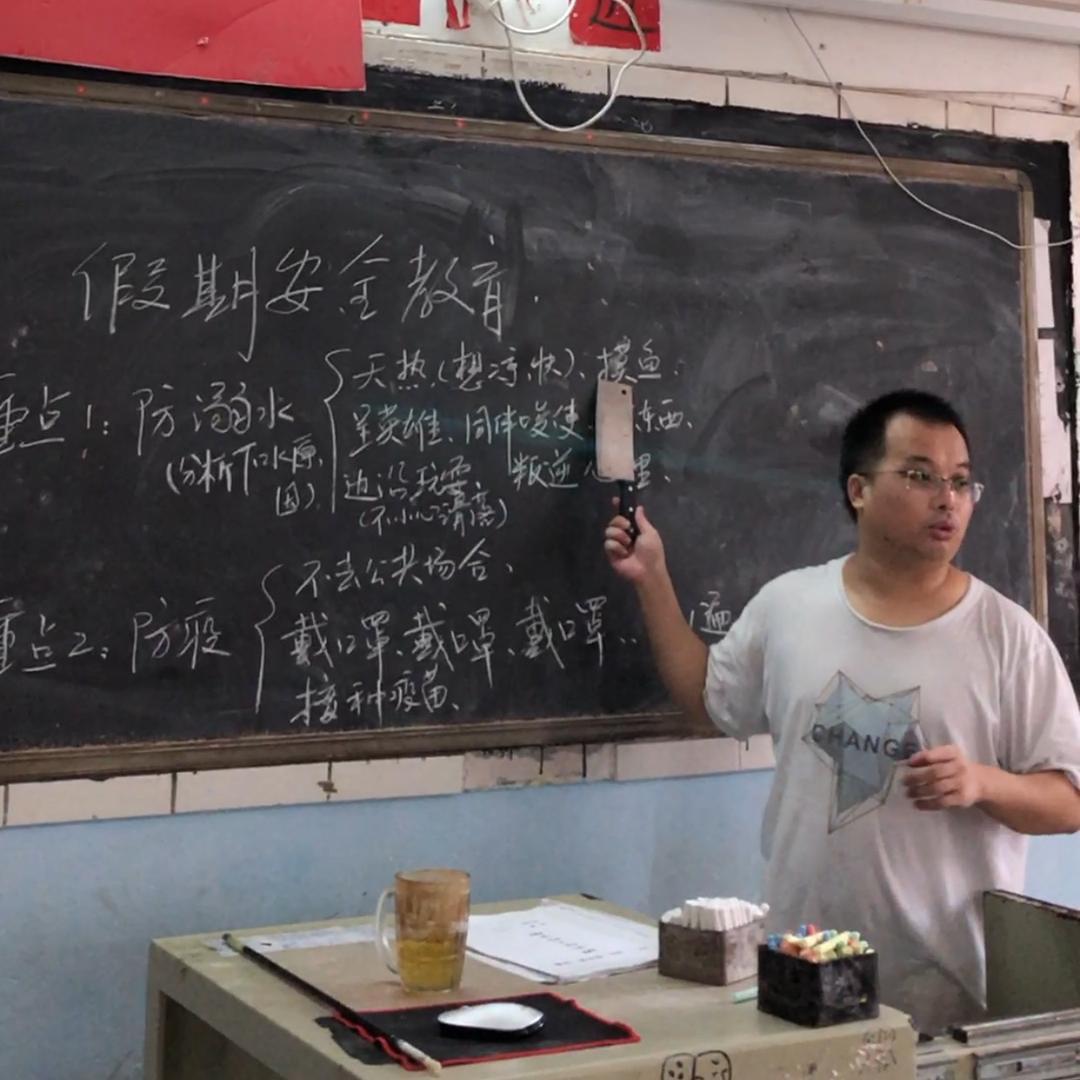 假期安全教育.
重点1：防溺水
(分析下水原因)
天热(想凉快)、摸鱼.
呈英雄、同伴唆使、东西、
边沿玩耍 叛逆心理、
(不小心滑落)
重点2：防疫
不去公共场合、
戴口罩、戴口罩、戴口罩..
接种疫苗、
CHANGE